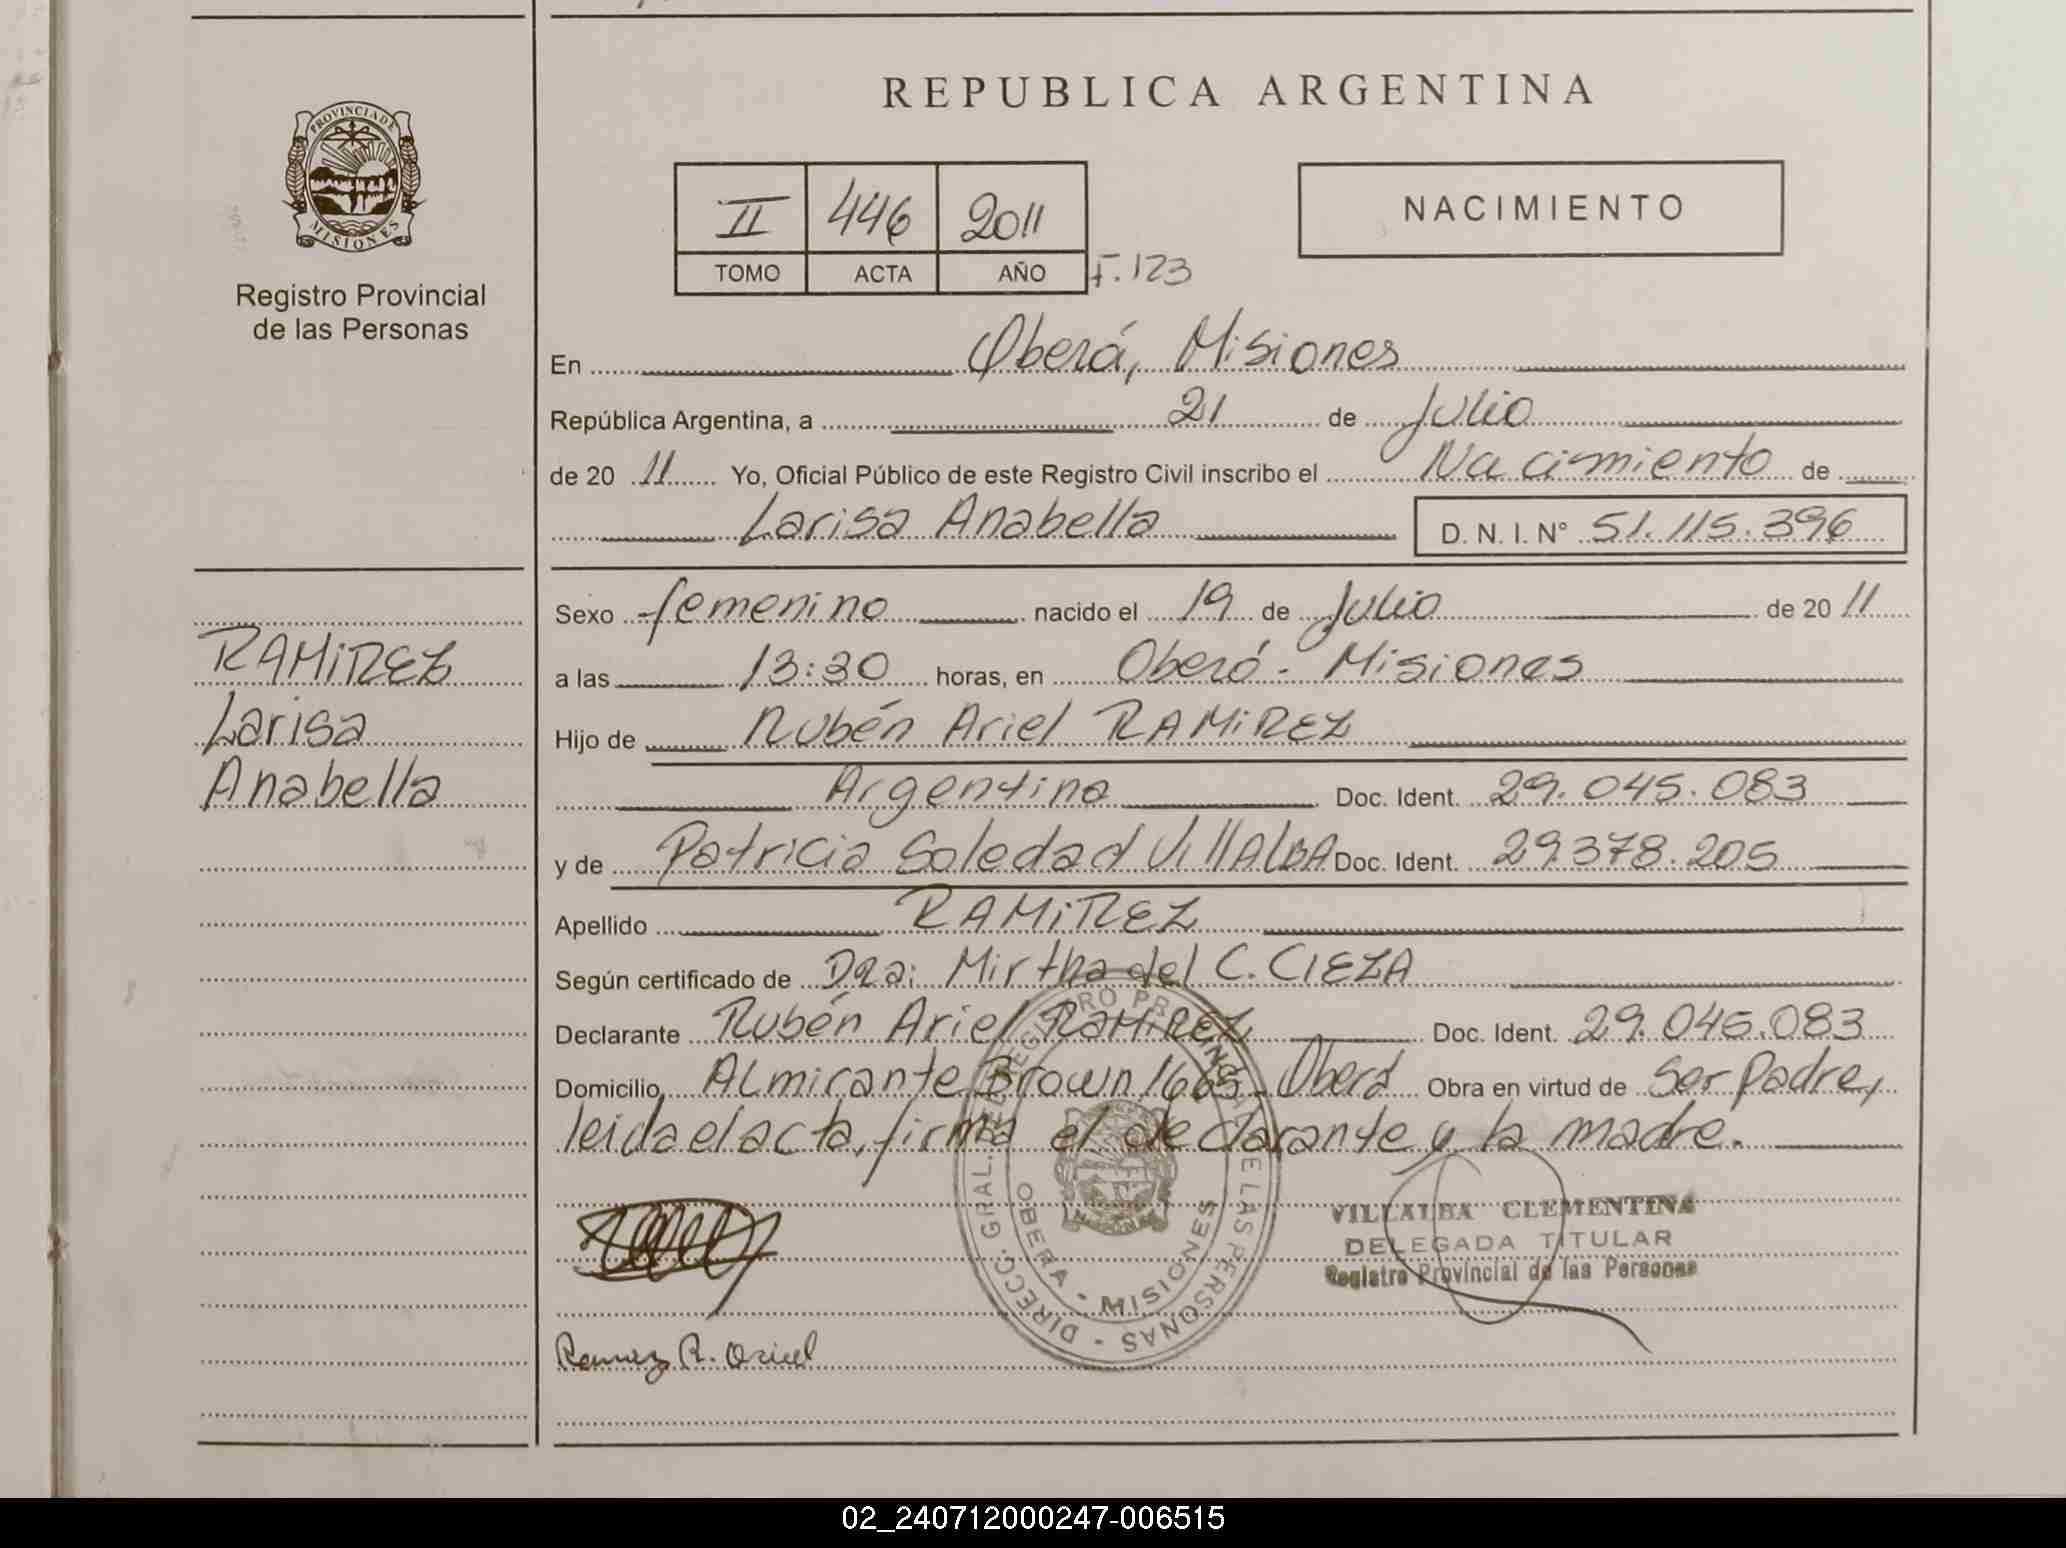 REPUBLICA ARGENTINA
PROVINCIA DE
MISIONES
Registro Provincial
de las Personas
II 446 2011
TOMO ACTA AÑO F. 123
NACIMIENTO
En Oberá, Misiones
República Argentina, a 21 de Julio
de 20 11 Yo, Oficial Público de este Registro Civil inscribo el Nacimiento de
Larisa Anabella D. N. I. N° 51.115.396
RAMIREZ
Larisa
Anabella
Sexo femenino nacido el 19 de Julio de 20 11
a las 13:30 horas, en Oberá - Misiones
Hijo de Rubén Ariel RAMIREZ
Argentina Doc. Ident. 29.045.083
y de Patricia Soledad VillALBA Doc. Ident. 29.378.205
Apellido RAMIREZ
Según certificado de Dra: Mirtha del C. CIEZA
Declarante Rubén Ariel RAMIREZ Doc. Ident. 29.045.083
Domicilio Almirante Brown 1665 - Oberá Obra en virtud de Ser Padre,
leida el acta, firma el declarante y la madre.
VILLALBA CLEMENTINA
DELEGADA TITULAR
Registro Provincial de las Personas
DIRECC. GRAL. DEL REGISTRO PROVINCIAL DE LAS PERSONAS -
OBERA - MISIONES
Ramirez R. Ariel
02_240712000247-006515